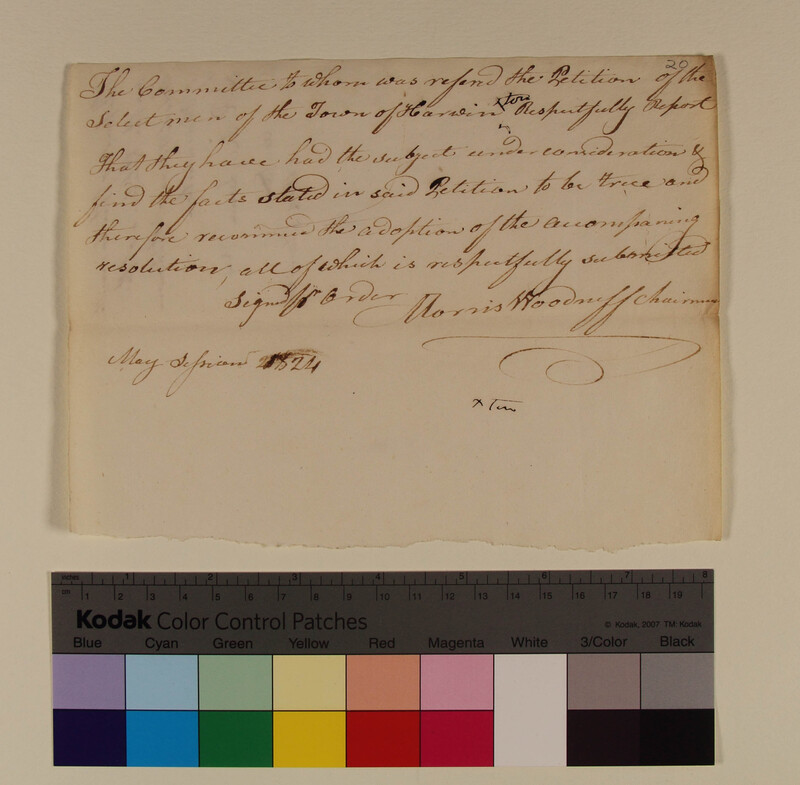 20
The Committee to whom was referd the Petition of the
Select men of the Town of Harwin xton Respectfully Report
That they have had the subject under consideration &
find the facts stated in said Petition to be true and
therefore recommed the adoption of the accompaning
resolution, all of which is respectfully submitted
Signd pr Order Morris Woodruff Chairman
May Session 1824
x ton
inches 1 2 3 4 5 6 7 8
cm 1 2 3 4 5 6 7 8 9 10 11 12 13 14 15 16 17 18 19
Kodak Color Control Patches © Kodak, 2007 TM: Kodak
Blue Cyan Green Yellow Red Magenta White 3/Color Black